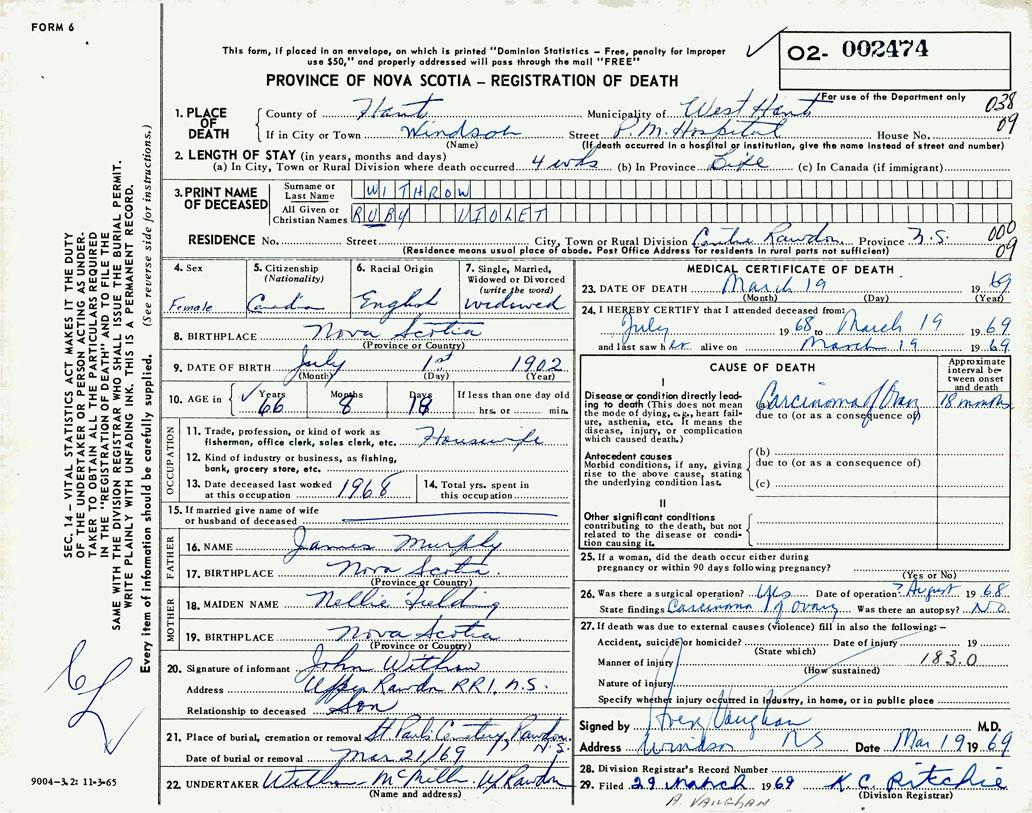 FORM 6
This form, if placed in an envelope, on which is printed "Dominion Statistics – Free, penalty for improper
use $50," and properly addressed will pass through the mail "FREE"
O2- 002474
PROVINCE OF NOVA SCOTIA – REGISTRATION OF DEATH
For use of the Department only
038
09
1. PLACE OF DEATH
County of Hants Municipality of West Hants
If in City or Town Windsor Street P.M. Hospital House No.
(Name) (If death occurred in a hospital or institution, give the name instead of street and number)
2. LENGTH OF STAY (in years, months and days)
(a) In City, Town or Rural Division where death occurred 4 wks (b) In Province Life (c) In Canada (if immigrant)
3. PRINT NAME OF DECEASED
Surname or Last Name WITHROW
All Given or Christian Names RUBY VIOLET
000
09
RESIDENCE No. Street City, Town or Rural Division Centre Rawdon Province N.S.
(Residence means usual place of abode. Post Office Address for residents in rural parts not sufficient)
4. Sex Female
5. Citizenship (Nationality) Canadian
6. Racial Origin English
7. Single, Married, Widowed or Divorced (write the word) widowed
8. BIRTHPLACE Nova Scotia
(Province or Country)
9. DATE OF BIRTH July 1st 1902
(Month) (Day) (Year)
10. AGE in Years 66 Months 8 Days 18 If less than one day old hrs. or min.
OCCUPATION
11. Trade, profession, or kind of work as fisherman, office clerk, sales clerk, etc. Housewife
12. Kind of industry or business, as fishing, bank, grocery store, etc.
13. Date deceased last worked at this occupation 1968
14. Total yrs. spent in this occupation
15. If married give name of wife or husband of deceased
FATHER
16. NAME James Murphy
17. BIRTHPLACE Nova Scotia
(Province or Country)
MOTHER
18. MAIDEN NAME Nellie Fielding
19. BIRTHPLACE Nova Scotia
(Province or Country)
20. Signature of informant John Withrow
Address Upper Rawdon RR1, N.S.
Relationship to deceased Son
21. Place of burial, cremation or removal St Pauls Cemetery, Rawdon, N.S.
Date of burial or removal Mar 21/69
22. UNDERTAKER McMillan
(Name and address)
MEDICAL CERTIFICATE OF DEATH
23. DATE OF DEATH March 19 1969
(Month) (Day) (Year)
24. I HEREBY CERTIFY that I attended deceased from:
July 1968 to March 19 1969
and last saw her alive on March 19 1969
CAUSE OF DEATH
Approximate interval between onset and death
I
Disease or condition directly leading to death (This does not mean the mode of dying, e.g., heart failure, asthenia, etc. It means the disease, injury, or complication which caused death.)
(a) Carcinoma of Ovary 18 months
due to (or as a consequence of)
Antecedent causes
Morbid conditions, if any, giving rise to the above cause, stating the underlying condition last.
(b)
due to (or as a consequence of)
(c)
II
Other significant conditions
contributing to the death, but not related to the disease or condition causing it.
25. If a woman, did the death occur either during
pregnancy or within 90 days following pregnancy?
(Yes or No)
26. Was there a surgical operation? Yes Date of operation? August 1968
State findings Carcinoma of ovary Was there an autopsy? No
27. If death was due to external causes (violence) fill in also the following: –
Accident, suicide or homicide? Date of injury 19
(State which)
Manner of injury 183.0
(How sustained)
Nature of injury
Specify whether injury occurred in industry, in home, or in public place
Signed by Vaughan M.D.
Address Windsor NS Date Mar 19 1969
28. Division Registrar's Record Number
29. Filed 29 March 1969 K. C. Ritchie
(Division Registrar)
A. VAUGHAN
SEC. 14 – VITAL STATISTICS ACT MAKES IT THE DUTY
OF THE UNDERTAKER OR PERSON ACTING AS UNDER-
TAKER TO OBTAIN ALL THE PARTICULARS REQUIRED
IN THE "REGISTRATION OF DEATH" AND TO FILE THE
SAME WITH THE DIVISION REGISTRAR WHO SHALL ISSUE THE BURIAL PERMIT.
WRITE PLAINLY WITH UNFADING INK. THIS IS A PERMANENT RECORD.
Every item of information should be carefully supplied. (See reverse side for instructions.)
9004-3.2: 11-3-65